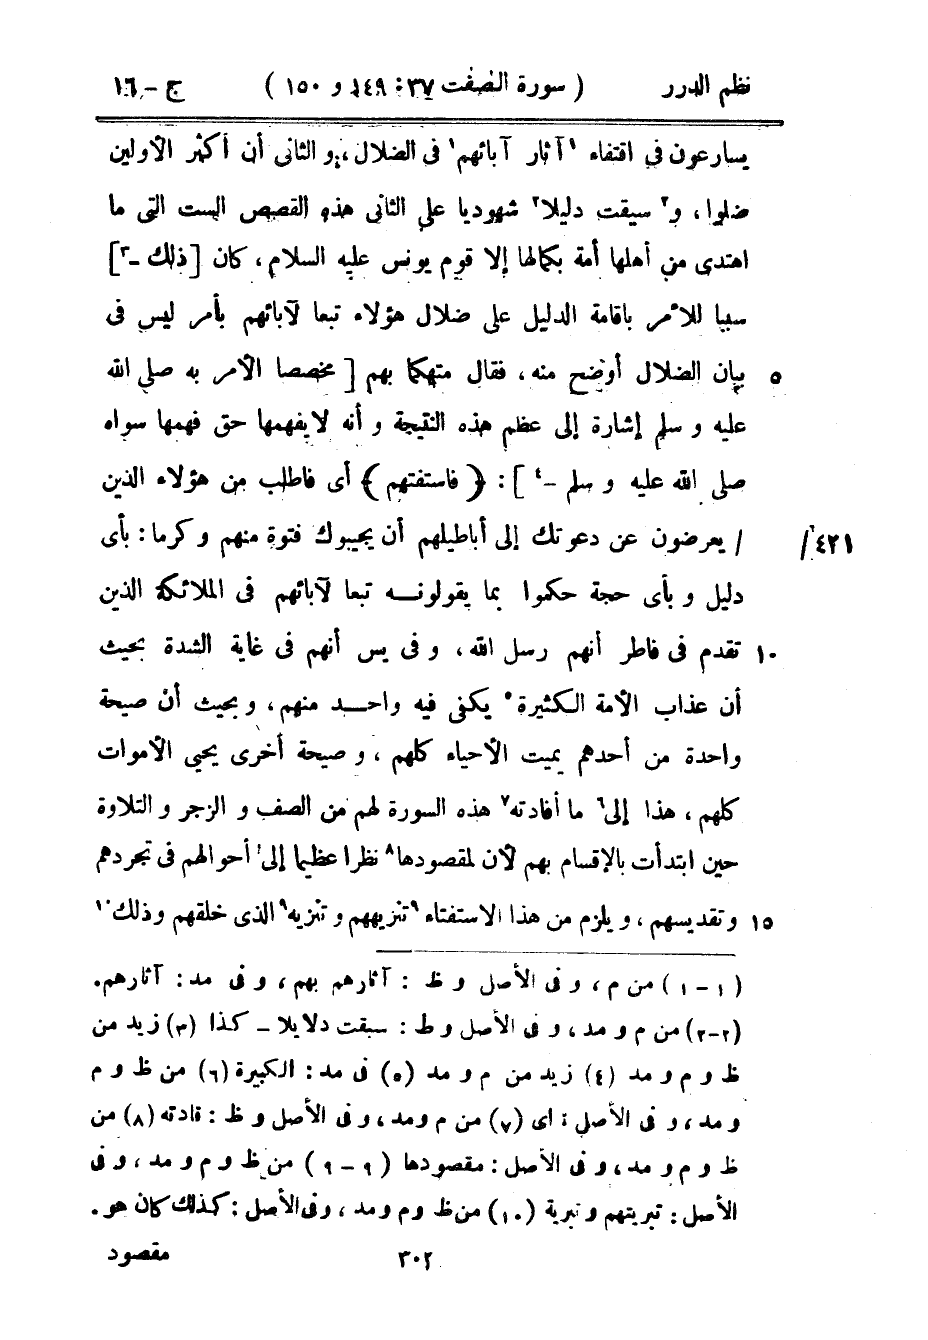 نظم الدرر ( سورة الصٰفٰت ٣٧ : ١٤٩ و ١٥٠ ) ج – ١٦
يسارعون فى اقتفاء ١آثار آبائهم١ فى الضلال ، و الثانى أن أكثر الأولين
ضلوا ، و٢ سيقت دليلا٢ شهوديا على الثانى هذه القصص الست التى ما
اهتدى من أهلها أمة بكمالها إلا قوم يونس عليه السلام ، كان [ ذلك –٣ ]
سببا للأمر باقامة الدليل على ضلال هؤلاء تبعا لآبائهم بأمر ليس فى
٥ بيان الضلال أوضح منه ، فقال متهكما بهم [ مخصصا الأمر به صلى الله
عليه و سلم إشارة إلى عظم هذه النتيجة و أنه لا يفهمها حق فهمها سواه
صلى الله عليه و سلم –٤ ] : ﴿ فاستفتهم ﴾ أى فاطلب من هؤلاء الذين
/٤٢١ / يعرضون عن دعوتك إلى أباطيلهم أن يجيبوك فتوة منهم و كرما : بأى
دليل و بأى حجة حكموا بما يقولونـــه تبعا لآبائهم فى الملائكة الذين
١٠ تقدم فى فاطر أنهم رسل الله ، و فى يس أنهم فى غاية الشدة بحيث
أن عذاب الأمة الكثيرة٥ يكفى فيه واحــد منهم ، و بحيث أن صيحة
واحدة من أحدهم يميت الأحياء كلهم ، و صيحة أخرى يحيى الأموات
كلهم ، هذا إلى٦ ما أفادته٧ هذه السورة لهم من الصف و الزجر و التلاوة
حين ابتدأت بالإقسام بهم لأن لمقصودها٨ نظرا عظيما إلى أحوالهم فى تجردهم
١٥ وتقديسهم ، و يلزم من هذا الاستفتاء ٩تنزيههم و تنزيه٩ الذى خلقهم وذلك١٠
(١ – ١) من م ، و فى الأصل و ظ : آثارهم بهم ، و فى مد : آثارهم.
(٢–٢) من م و مد ، و فى الأصل و ظ : سبقت دلايلا – كذا (٣) زيد من
ظ و م و مد (٤) زيد من م و مد (٥) فى مد : الكبيرة (٦) من ظ و م
و مد ، و فى الأصل : اى (٧) من م ومد ، و فى الأصل و ظ : قادته (٨) من
ظ و م و مد ، و فى الأصل : مقصودها (٩ – ٩) من ظ و م و مد ، و فى
الأصل : تبريتهم و تبرية (١٠) من ظ و م و مد ، و فى الأصل : كذلك كان هو.
٣٠٢ مقصود